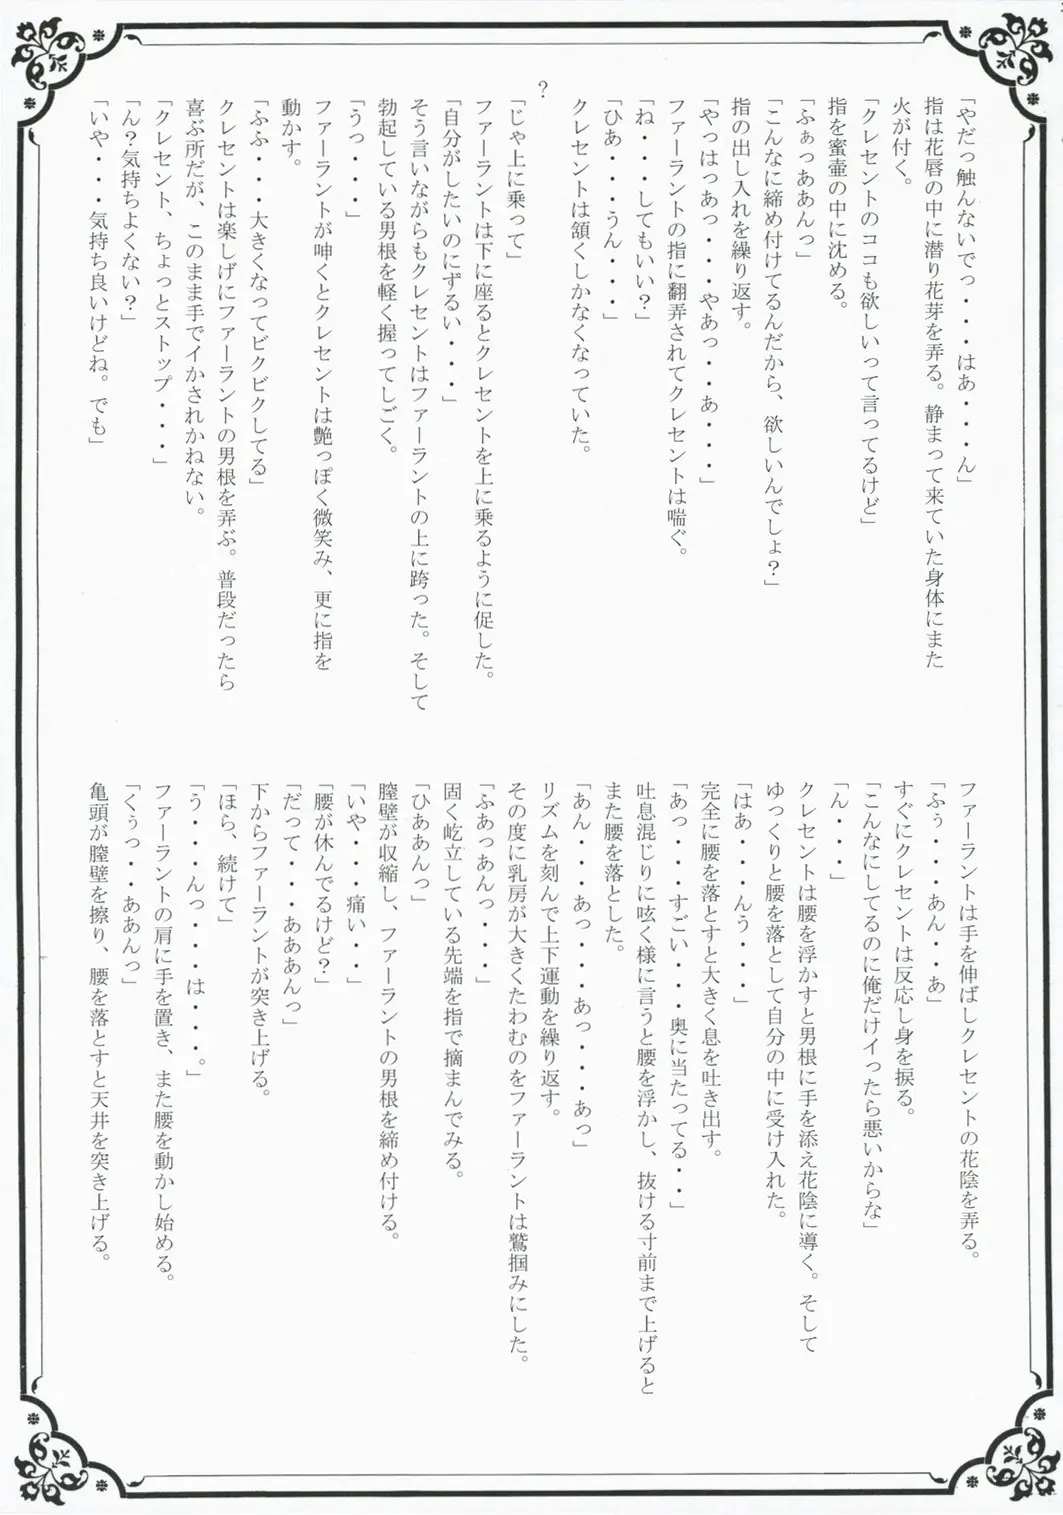 「やだっ触んないでっ・・・はあ・・・ん」
指は花唇の中に潜り花芽を弄る。静まって来ていた身体にまた
火が付く。
「クレセントのココも欲しいって言ってるけど」
指を蜜壷の中に沈める。
「ふぁっああんっ」
「こんなに締め付けてるんだから、欲しいんでしょ?」
指の出し入れを繰り返す。
「やっはっあっ・・・やあっ・・あ・・・」
ファーラントの指に翻弄されてクレセントは喘ぐ。
「ね・・・してもいい?」
「ひあ・・・うん・・・」
クレセントは頷くしかなくなっていた。
?
「じゃ上に乗って」
ファーラントは下に座るとクレセントを上に乗るように促した。
「自分がしたいのにずるい・・・」
そう言いながらもクレセントはファーラントの上に跨った。そして
勃起している男根を軽く握ってしごく。
「うっ・・・」
ファーラントが呻くとクレセントは艶っぽく微笑み、更に指を
動かす。
「ふふ・・・大きくなってビクビクしてる」
クレセントは楽しげにファーラントの男根を弄ぶ。普段だったら
喜ぶ所だが、このまま手でイかされかねない。
「クレセント、ちょっとストップ・・・」
「ん?気持ちよくない?」
「いや・・・気持ち良いけどね。でも」
ファーラントは手を伸ばしクレセントの花陰を弄る。
「ふぅ・・・あん・・あ」
すぐにクレセントは反応し身を捩る。
「こんなにしてるのに俺だけイったら悪いからな」
「ん・・・」
クレセントは腰を浮かすと男根に手を添え花陰に導く。そして
ゆっくりと腰を落として自分の中に受け入れた。
「はあ・・・んう・・・」
完全に腰を落とすと大きく息を吐き出す。
「あっ・・・すごい・・・奥に当たってる・・」
吐息混じりに呟く様に言うと腰を浮かし、抜ける寸前まで上げると
また腰を落とした。
「あん・・・あっ・・・あっ・・・あっ」
リズムを刻んで上下運動を繰り返す。
その度に乳房が大きくたわむのをファーラントは鷲掴みにした。
「ふあっあんっ・・・」
固く屹立している先端を指で摘まんでみる。
「ひああんっ」
膣壁が収縮し、ファーラントの男根を締め付ける。
「いや・・・痛い・・」
「腰が休んでるけど?」
「だって・・・あああんっ」
下からファーラントが突き上げる。
「ほら、続けて」
「う・・・んっ・・・は・・・。」
ファーラントの肩に手を置き、また腰を動かし始める。
「くぅっ・・ああんっ」
亀頭が膣壁を擦り、腰を落とすと天井を突き上げる。